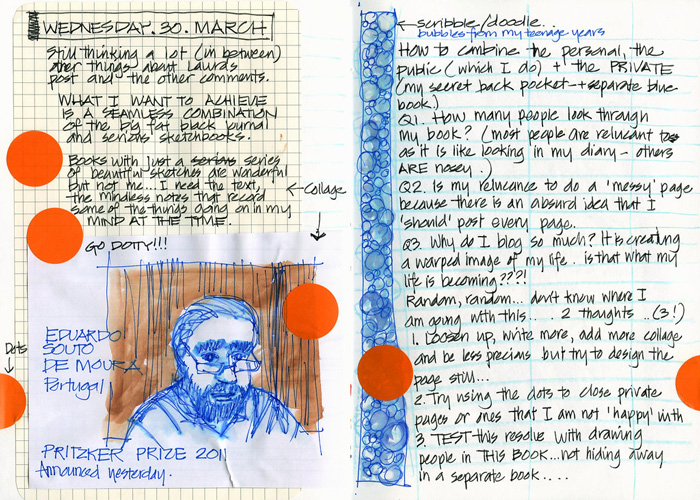 WEDNESDAY. 30. MARCH
Still thinking a lot (in between)
other things about Laura's
post and the other comments.
WHAT I WANT TO ACHIEVE
IS A SEAMLESS COMBINATION
of the big fat black journal
and serious sketchbooks.
Books with just a serious series
of beautiful sketches are wonderful
but not me... I need the text,
the mindless notes that record
some of the things going on in my
MIND AT THE TIME.
← Collage
GO DOTTY!!!
Dots
EDUARDO
SOUTO
DE MOURA
Portugal
PRITZKER PRIZE 2011
Announced yesterday.
scribble/doodle..
bubbles from my teenage years
How to combine the personal, the
public (which I do) + the PRIVATE
(my secret back pocket + separate blue
book.)
Q1. How many people look through
my book? (most people are reluctant to
as it is like looking in my diary - others
ARE nosey.)
Q2. Is my reluctance to do a 'messy' page
because there is an absurd idea that I
'should' post every page.
Q3. Why do I blog so much? It is creating
a warped image of my life. is that what my
life is becoming???!
Random, random... don't know where I
am going with this... 2 thoughts ..(3!)
1. Loosen up, write more, add more collage
and be less precious but try to design the
page still...
2. Try using the dots to close private
pages or ones that I am not 'happy' with
3. TEST this resolve with drawing
people in THIS BOOK...not hiding away
in a separate book....